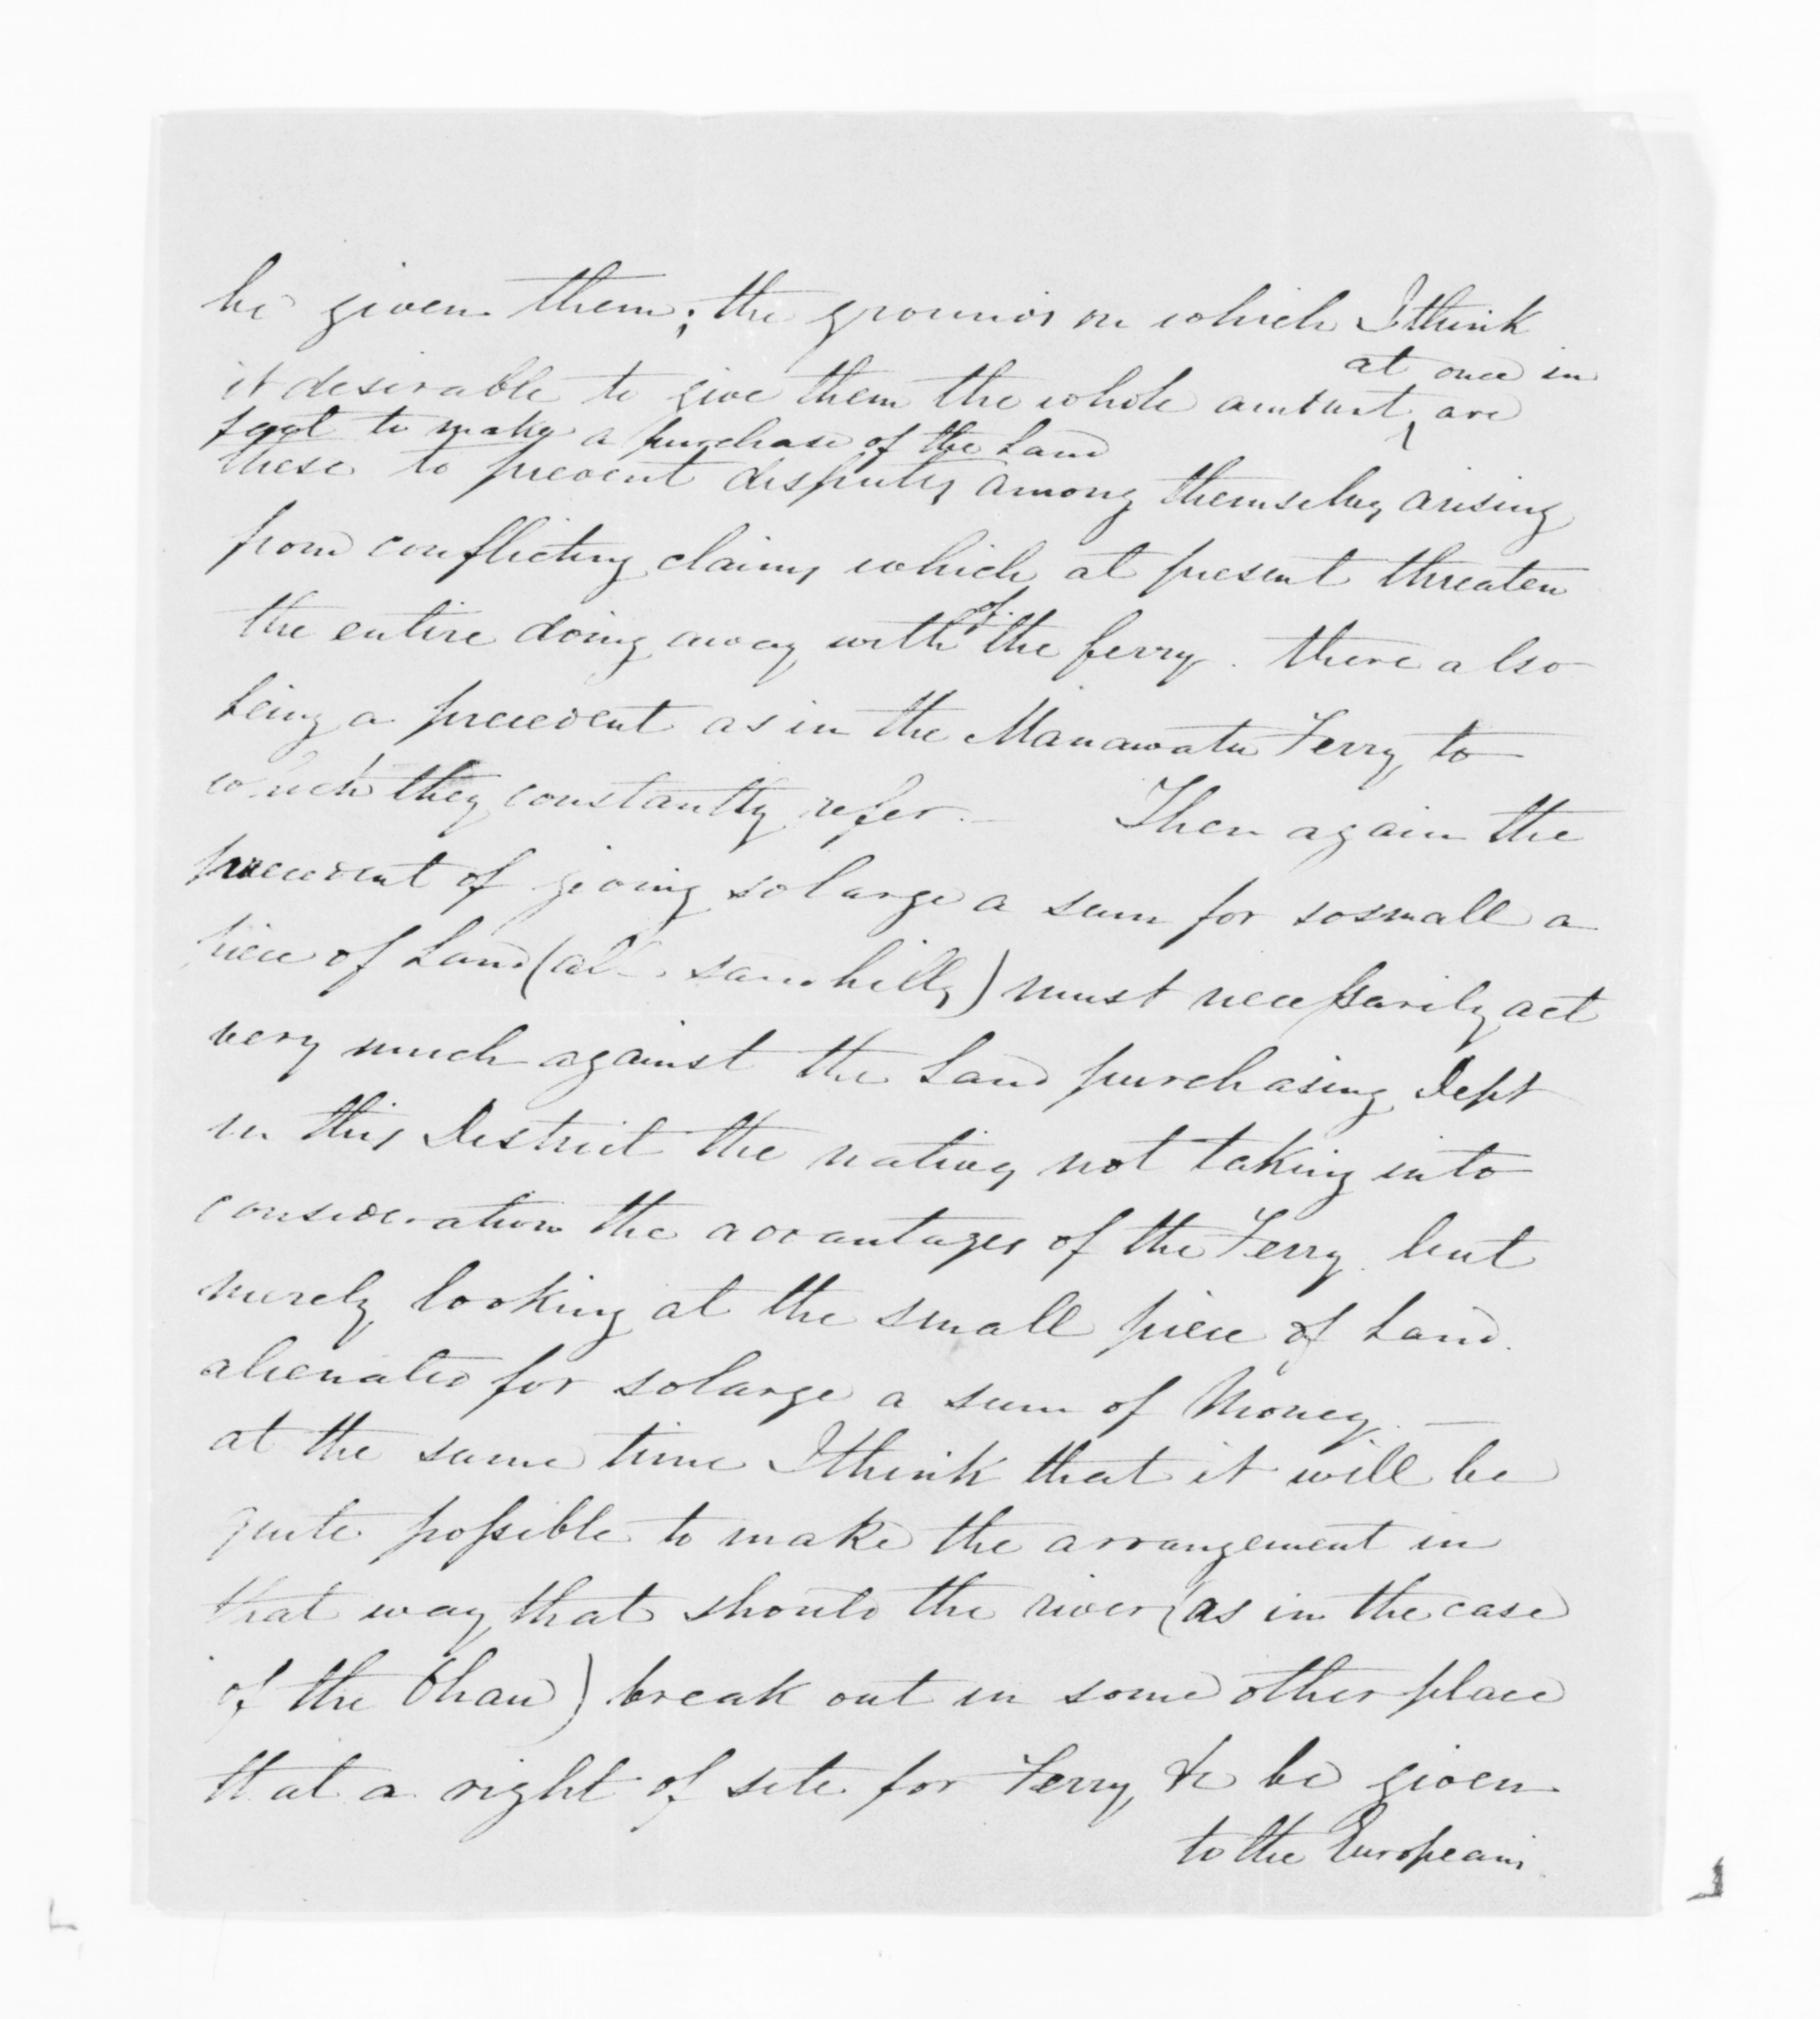 be given them; the grounds on which I think
it desirable to give them the whole amount at once in
fact to make a purchase of the Land are
these to prevent disputes among themselves arising
from conflicting claims which at present threaten
the entire doing away with of the ferry. there also
being a precedent as in the Manawatu Ferry, to
which they constantly refer. — Then again the
precedent of giving so large a sum for so small a
piece of Land (all sandhills) must necessarily act
very much against the Land purchasing Dept
in this District the natives not taking into
consideration the advantages of the Ferry but
merely looking at the small piece of Land.
alienated for so large a sum of Money. —
at the same time I think that it will be
quite possible to make the arrangement in
that way, that should the river (as in the case
of the Ohau) break out in some other place
that a right of site for Ferry, &c be given
to the Europeans.